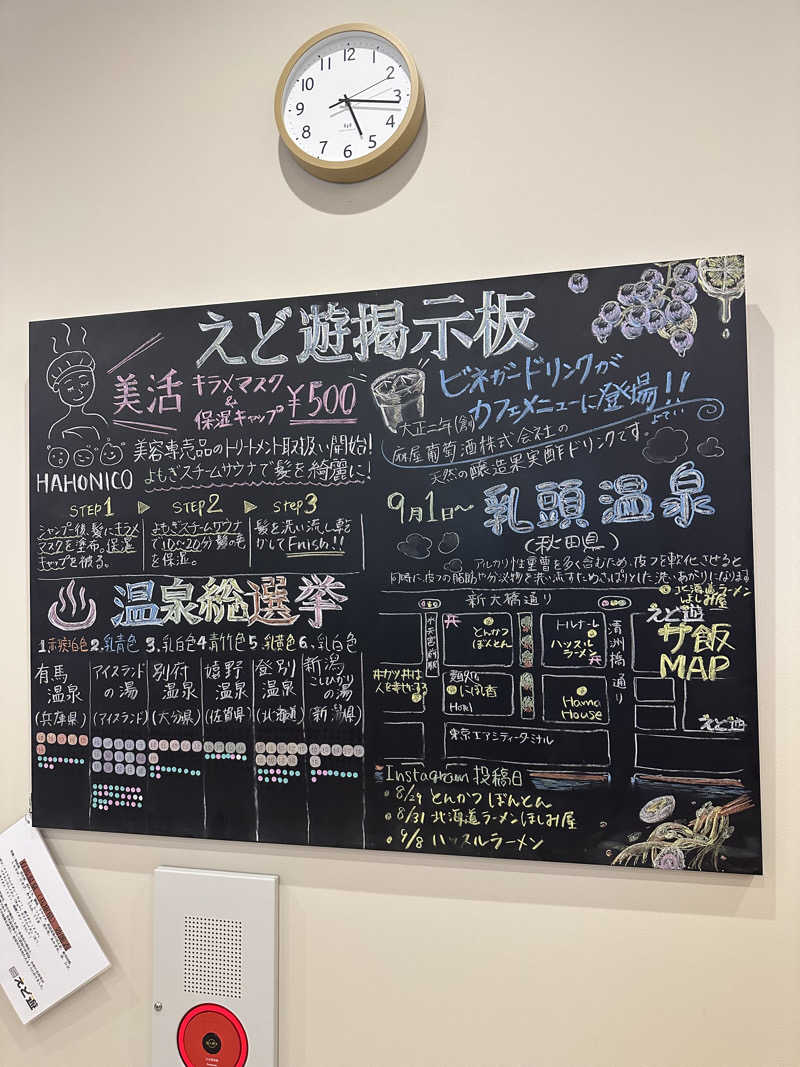 12
1
2
3
4
5
6
7
8
9
10
11
えど遊掲示板
美活
キラメマスク
&
保湿キャップ
¥500
美容専売品のトリートメント取扱い開始!
よもぎスチームサウナで髪を綺麗に!
HAHONICO
STEP1 ▶ STEP2 ▶ STEP3
シャンプー後、髪にキラメ
マスクを塗布。保湿
キャップを被る。
よもぎスチームサウナ
で10〜20分髪の毛
を保湿。
髪を洗い流し乾
かしてFnish!!
ビネガードリンクが
カフェメニューに登場!!
大正二年(創)
麻屋葡萄酒株式会社の
天然の醸造果実酢ドリンクです。
9月1日〜
乳頭温泉
(秋田県)
アルカリ性重曹を多く含むため、皮フを軟化させると
同時に、皮フの脂肪や分泌物を洗い流すためさっぱりとした洗いあがりになります
温泉総選挙
1.赤褐白色 2.乳青色 3.乳白色 4.青竹色 5.乳黄色 6.乳白色
有馬
温泉
(兵庫県)
アイスランド
の湯
(アイスランド)
別府
温泉
(大分県)
嬉野
温泉
(佐賀県)
登別
温泉
(北海道)
新潟
こしひかり
の湯
(新潟県)
新大橋通り
北海道ラーメン
ほしみ屋
えど遊
サ飯
MAP
とんかつ
ぽんとん
トルナーレ
ハッスル
ラーメン
清洲橋通り
丼カツ丼は
人を幸せにする
Hotel
Hama
House
えど遊
東京エアシティターミナル
Instagram 投稿日
8/29 とんかつ ぽんとん
8/31 北海道ラーメン ほしみ屋
9/8 ハッスルラーメン
えど遊